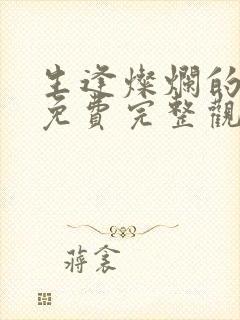 生逢燦爛的
免費完整觀
蔣衾